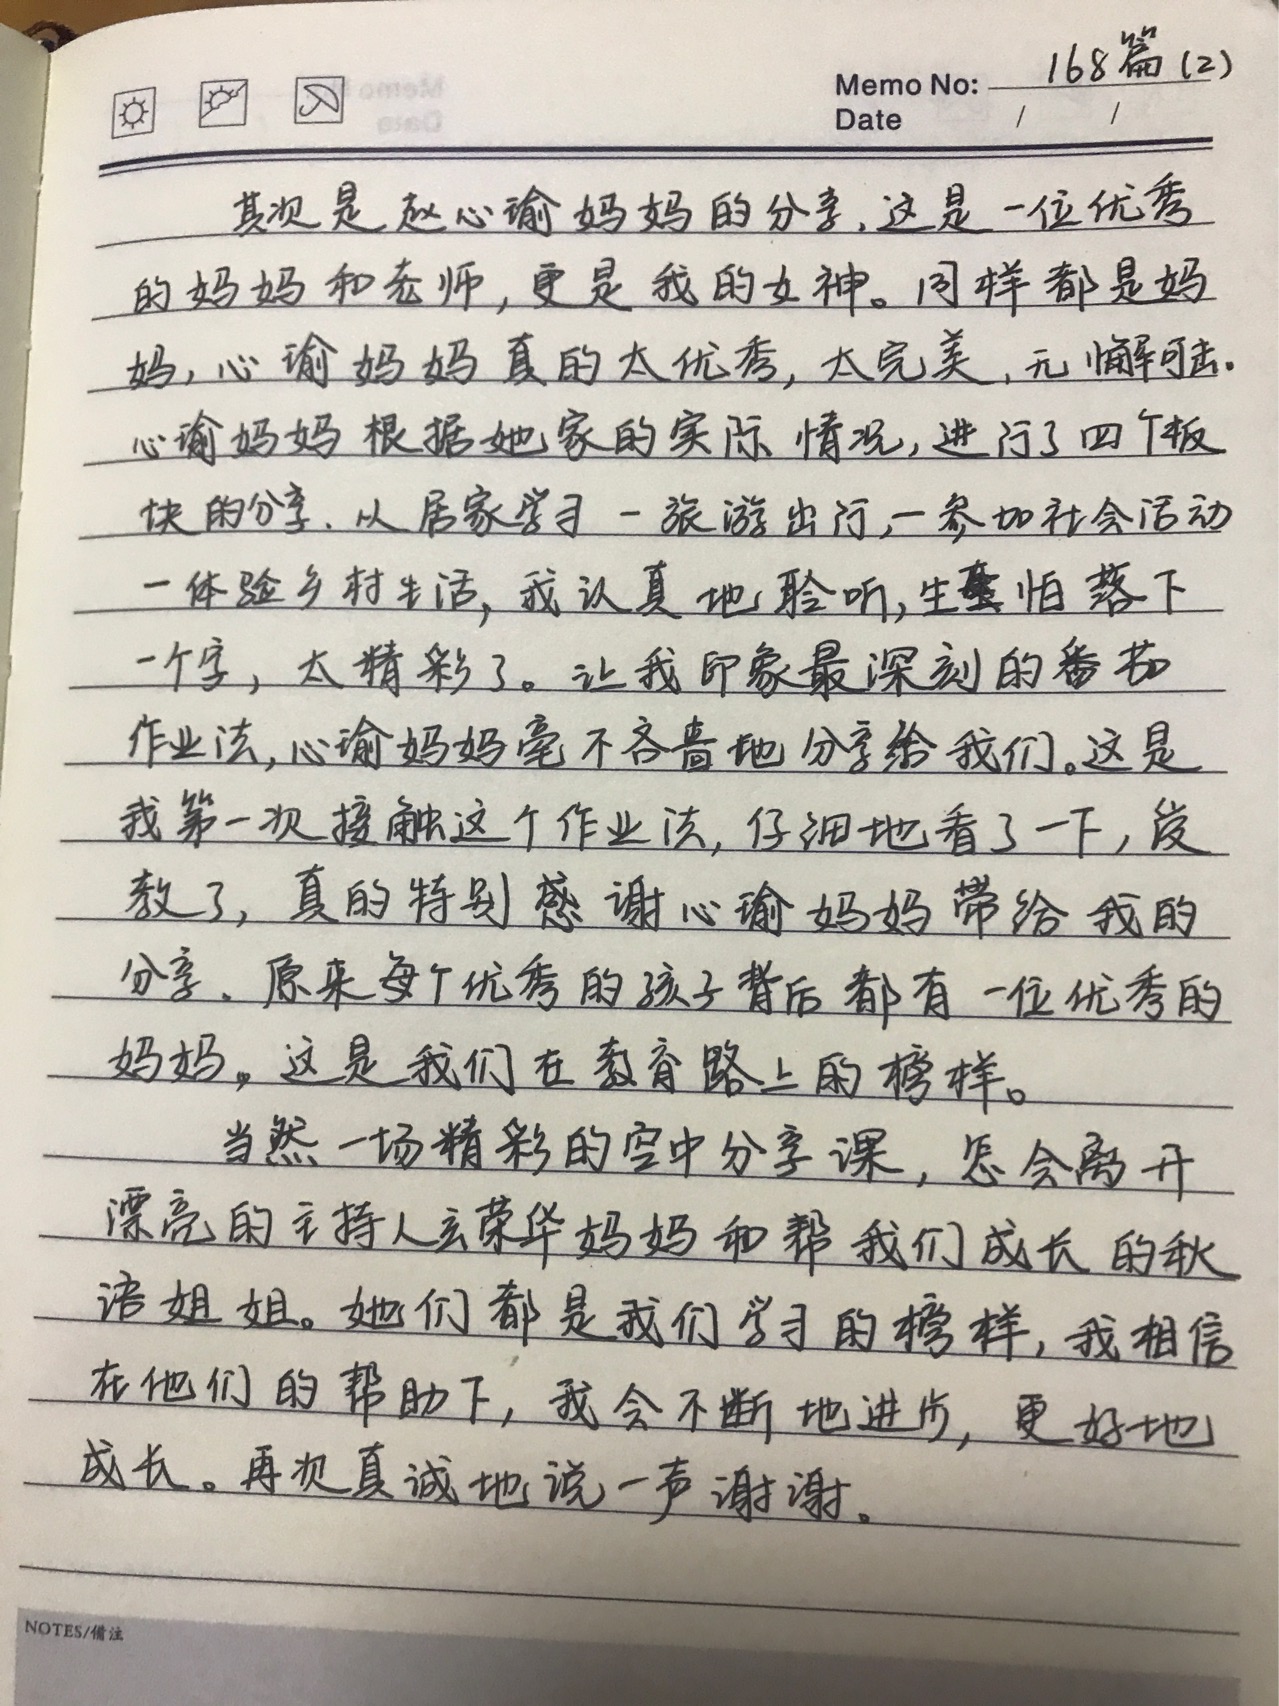 Memo No: 168篇(2)
Date / /
其次是赵心瑜妈妈的分享,这是一位优秀
的妈妈和老师,更是我的女神。同样都是妈
妈,心瑜妈妈真的太优秀,太完美,无懈可击。
心瑜妈妈根据她家的实际情况,进行了四个板
块的分享.从居家学习一旅游出行,一参加社会活动
一体验乡村生活,我认真地聆听,生怕落下
一个字,太精彩了。让我印象最深刻的番茄
作业法,心瑜妈妈毫不吝啬地分享给我们。这是
我第一次接触这个作业法,仔细地看了一下,受
教了,真的特别感谢心瑜妈妈带给我的
分享.原来每个优秀的孩子背后都有一位优秀的
妈妈。这是我们在教育路上的榜样。
当然一场精彩的空中分享课,怎会离开
漂亮的主持人玄荣华妈妈和帮我们成长的秋
语姐姐。她们都是我们学习的榜样,我相信
在他们的帮助下,我会不断地进步,更好地
成长。再次真诚地说一声谢谢。
NOTES/備注